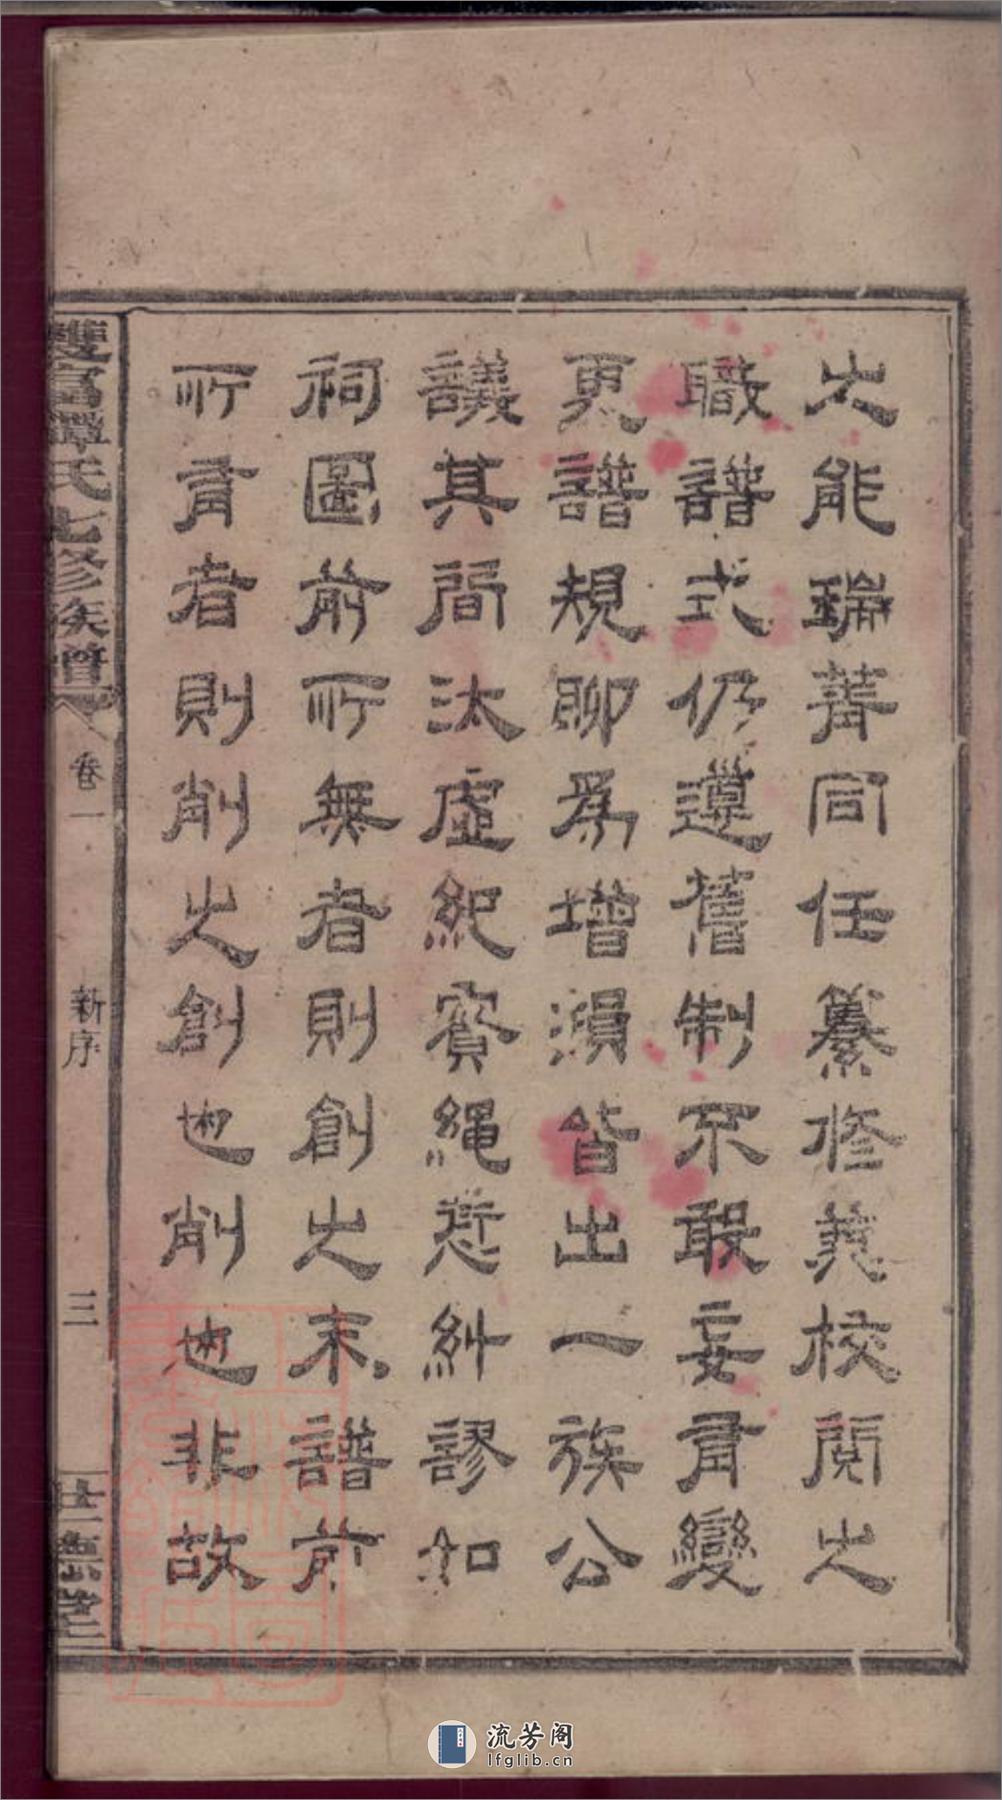 之能瑞菁同任纂修兼校閱之
職譜式仍遵舊制不敢妄有變
更譜規聊為增損皆出一族公
議其間汰虛紀實繩愆糾謬如
祠圖前所無者則創之末譜前
所有者則削之創也削也非故
雙富譚氏七修族譜
卷一
新序
三
流芳阁
lfglib.cn